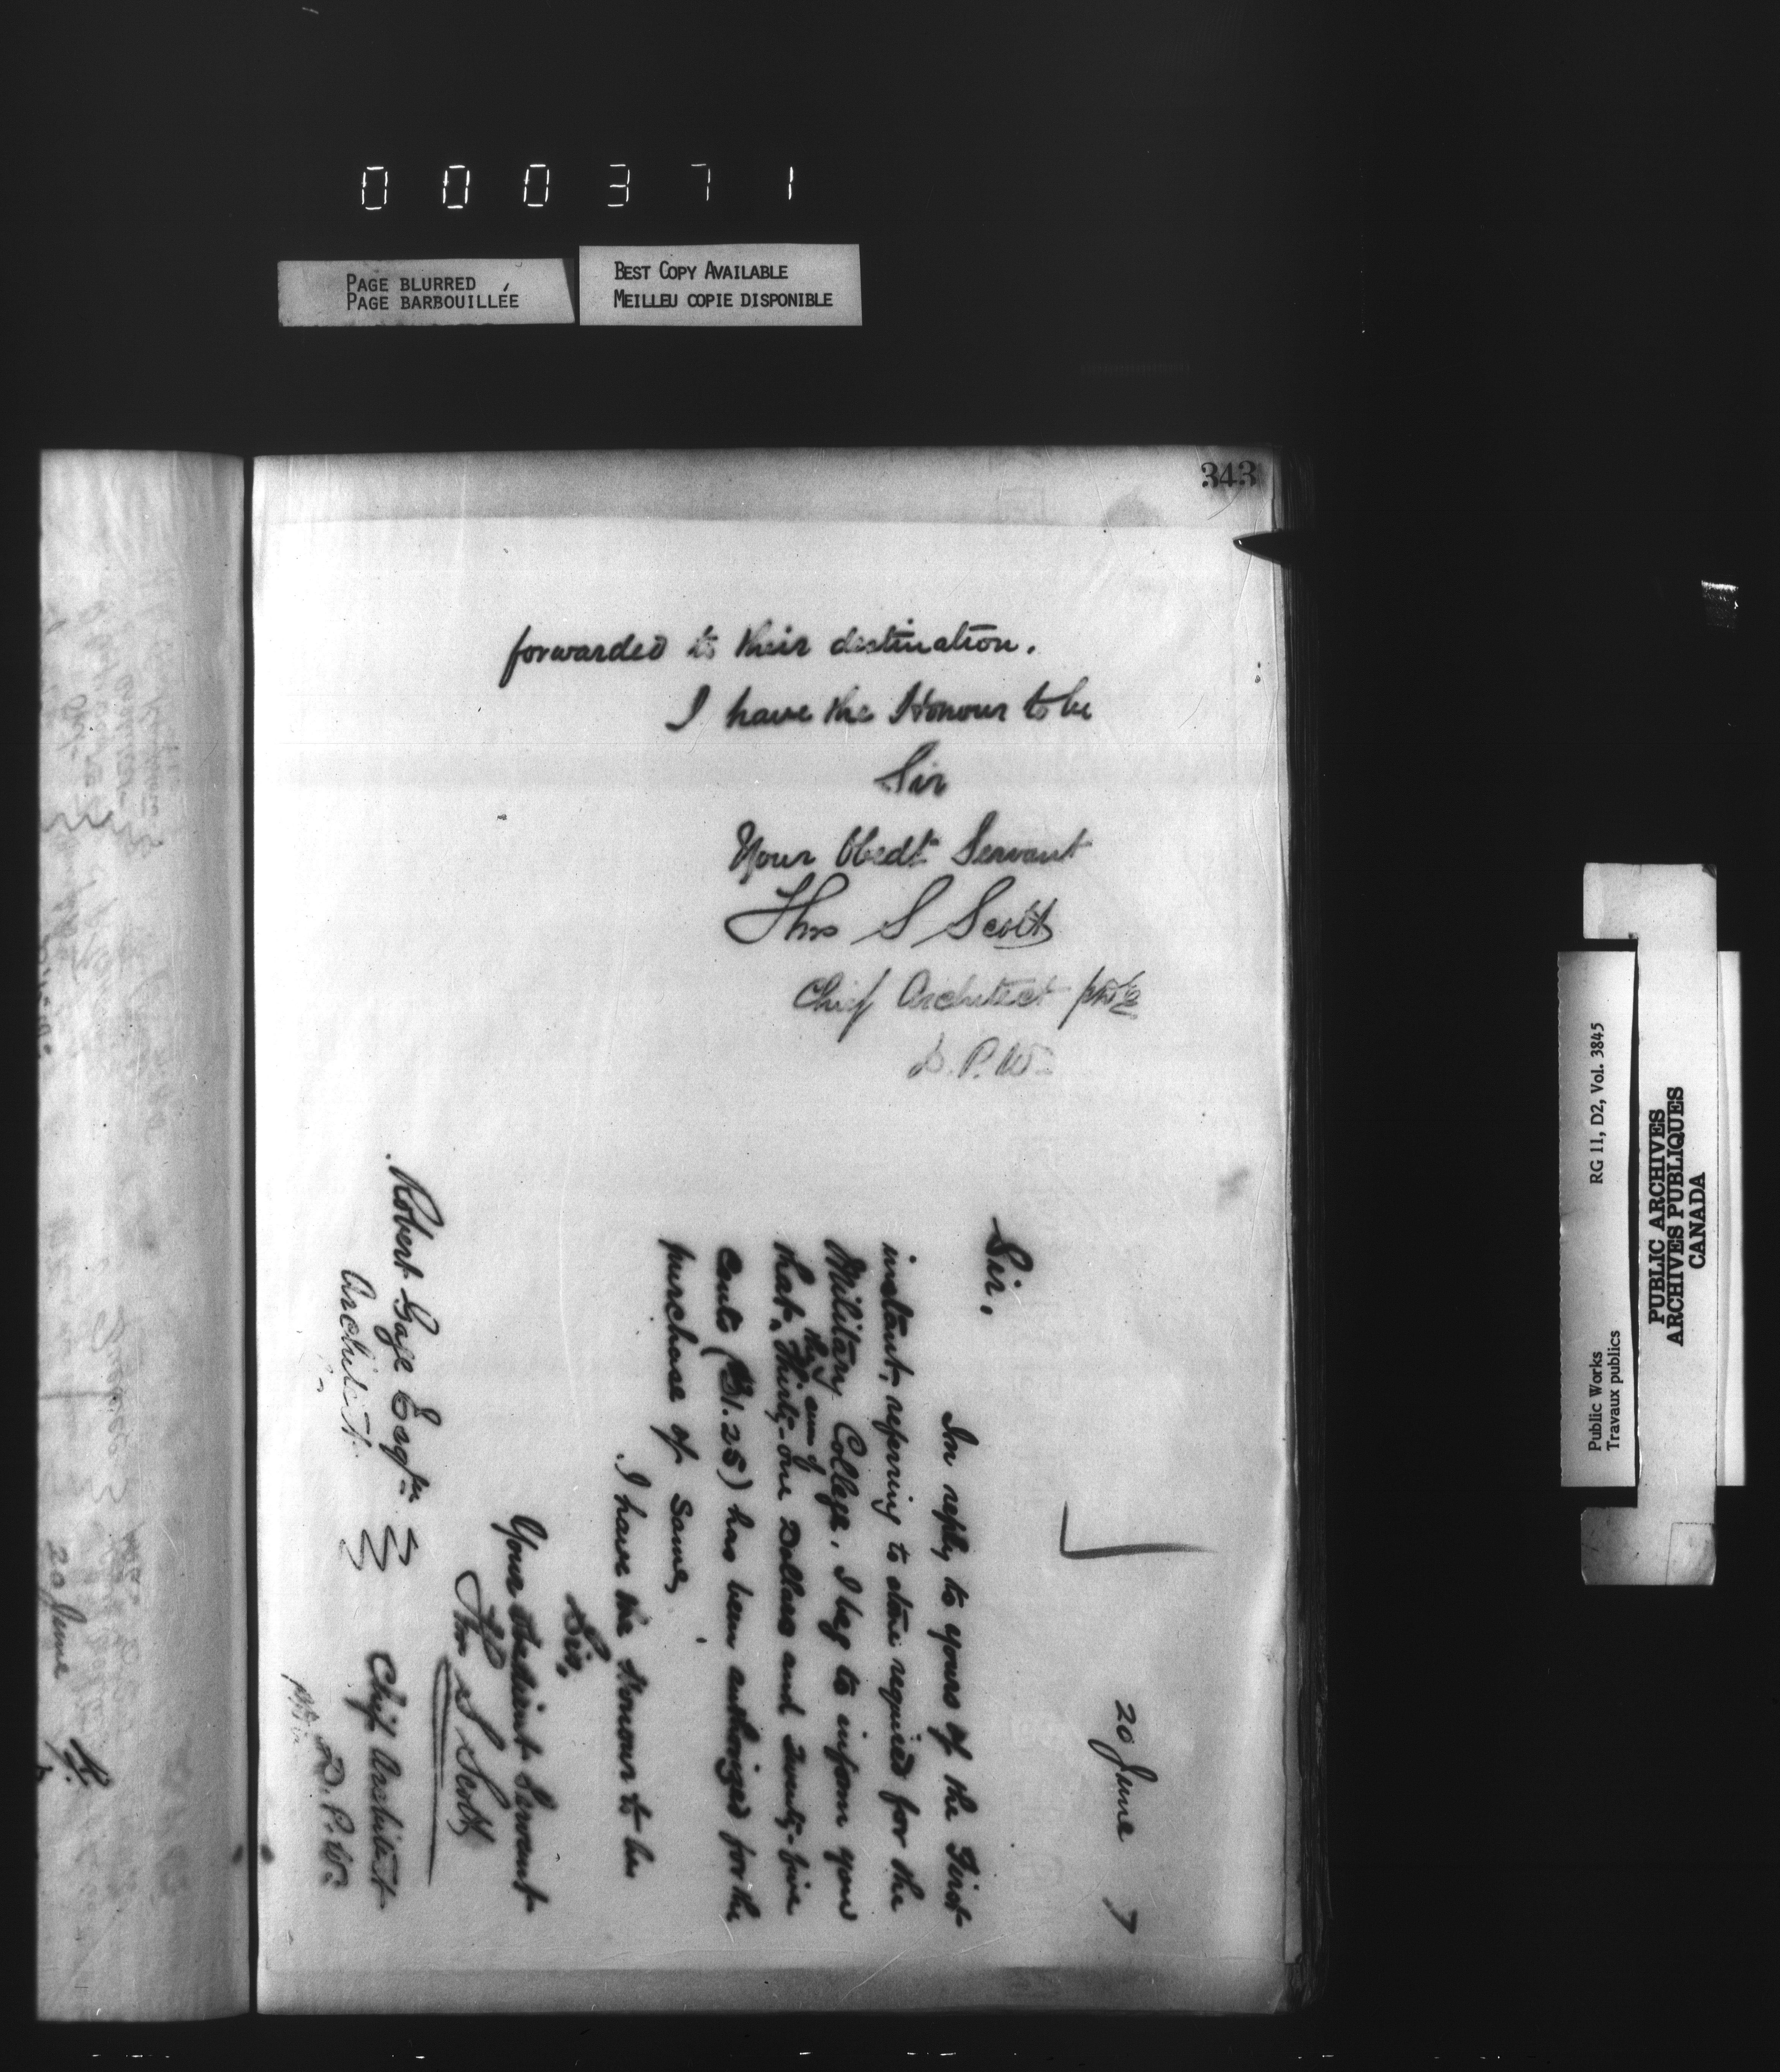 000371
PAGE BLURRED
PAGE BARBOUILLÉE
BEST COPY AVAILABLE
MEILLEU COPIE DISPONIBLE
343
forwarded to their destination.
I have the Honour to be
Sir
Your Obedt Servant
Thos S Scott
Chief Architect
D. P. W.
20 June 7
Sir,
In reply to yours of the First
instant, referring to stove required for the
Military College, I beg to inform you
that the sum of Thirty-one Dollars and Twenty-five
Cents (31.25) has been authorized for the
purchase of Same,
I have the Honour to be
Sir,
Your Obedient Servant
Thos S Scott
Chief Architect
D. P. W.
Robert Gage Esqr
Architect
20 June
RG 11, D2, Vol. 3845
Public Works
Travaux publics
PUBLIC ARCHIVES
ARCHIVES PUBLIQUES
CANADA